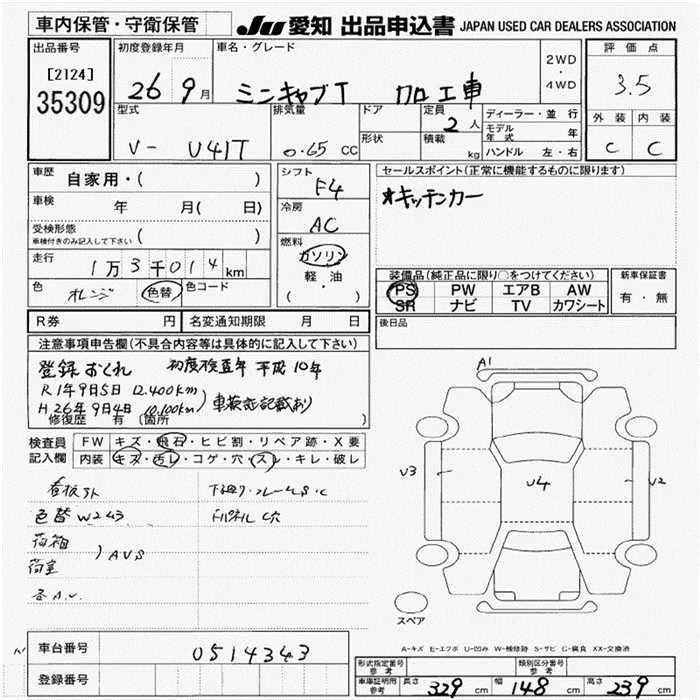 車内保管・守衛保管
JU 愛知 出品申込書 JAPAN USED CAR DEALERS ASSOCIATION
出品番号
[2124]
35309
初度登録年月
26 9月
車名・グレード
ミンキャブT 加工車
2WD
・
4WD
評価点
3.5
外装 内装
C C
型式
V- U41T
排気量
0.65 CC
ドア
形状
定員
2人
積載
kg
ディーラー・並行
モデル年式 年
ハンドル 左・右
車歴
自家用・( )
車検
年 月( 日)
受検形態
車検付きのみ記入して下さい ( )
走行
1万3千014km
色
オレンジ
色替
色コード
シフト
F4
冷房
AC
燃料
ガソリン
軽・油
( ・ )
セールスポイント(正常に機能するものに限ります)
*キッチンカー
装備品(純正品に限り○をつけてください)
PS PW エアB AW
SR ナビ TV カワシート
新車保証書
有・無
後日品
R券 円 名変通知期限 月 日
注意事項申告欄(不具合内容等は具体的に記入して下さい)
登録おくれ 初度検査年 平成10年
R1年9月5日 12.400km
H26年9月4日 10.100km) 車検証記載あり
修復歴 有 (箇所 )
検査員
記入欄
FW キズ・飛石・ヒビ割・リペア跡・X要
内装 キズ・汚レ・コゲ・穴・スレ・キレ・破レ
看板外 下廻り・フレームS・C
色替 W2 43
荷箱
荷室 ) AUS
各A.U.
A1
U3
U4
U2
スペア
A-キズ E-エクボ U-凹み W-補修跡 S-サビ C-腐食 XX-交換済
車台番号
0514343
登録番号
形式指定番号
参考
類別区分番号
参考
車庫証明用
参考
長さ 329cm 幅 148cm 高さ 239cm